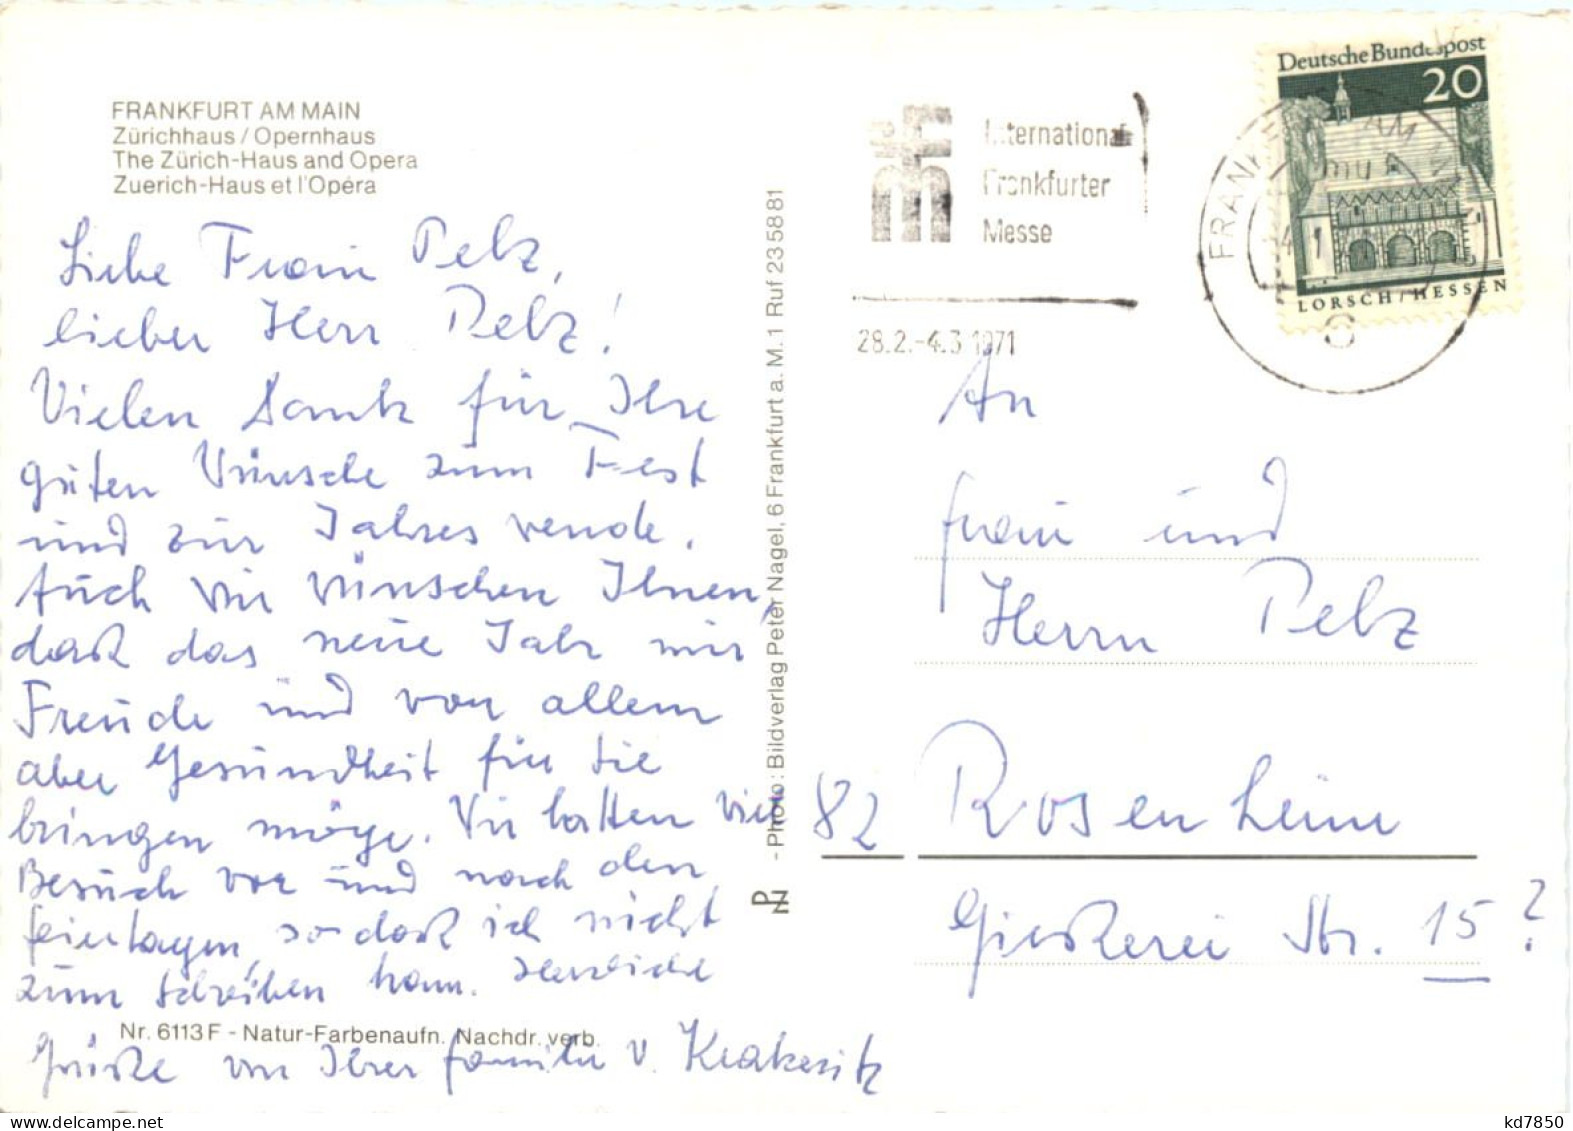 FRANKFURT AM MAIN
Zürichhaus / Opernhaus
The Zürich-Haus and Opera
Zuerich-Haus et l'Opéra
Liebe Frau Pelz,
lieber Herr Pelz!
Vielen Dank für Ihre
guten Wünsche zum Fest
und zur Jahreswende.
Auch wir wünschen Ihnen,
daß das neue Jahr nur
Freude und vor allem
aber Gesundheit für Sie
bringen möge. Wir hatten viel
Besuch vor und nach den
Feiertagen, so daß ich nicht
zum Schreiben kam. Herzliche
Grüße von Ihrer Familie v.
Nr. 6113 F - Natur-Farbenaufn. Nachdr. verb.
- Photo: Bildverlag Peter Nagel, 6 Frankfurt a. M. 1 Ruf 23 58 81
PN
Internationale
Frankfurter
Messe
28.2.-4.3 1971
Deutsche Bundespost
20
LORSCH / HESSEN
An
Frau und
Herrn Pelz
82 Rosenheim
Gießerei Str. 15 ?
kd7850